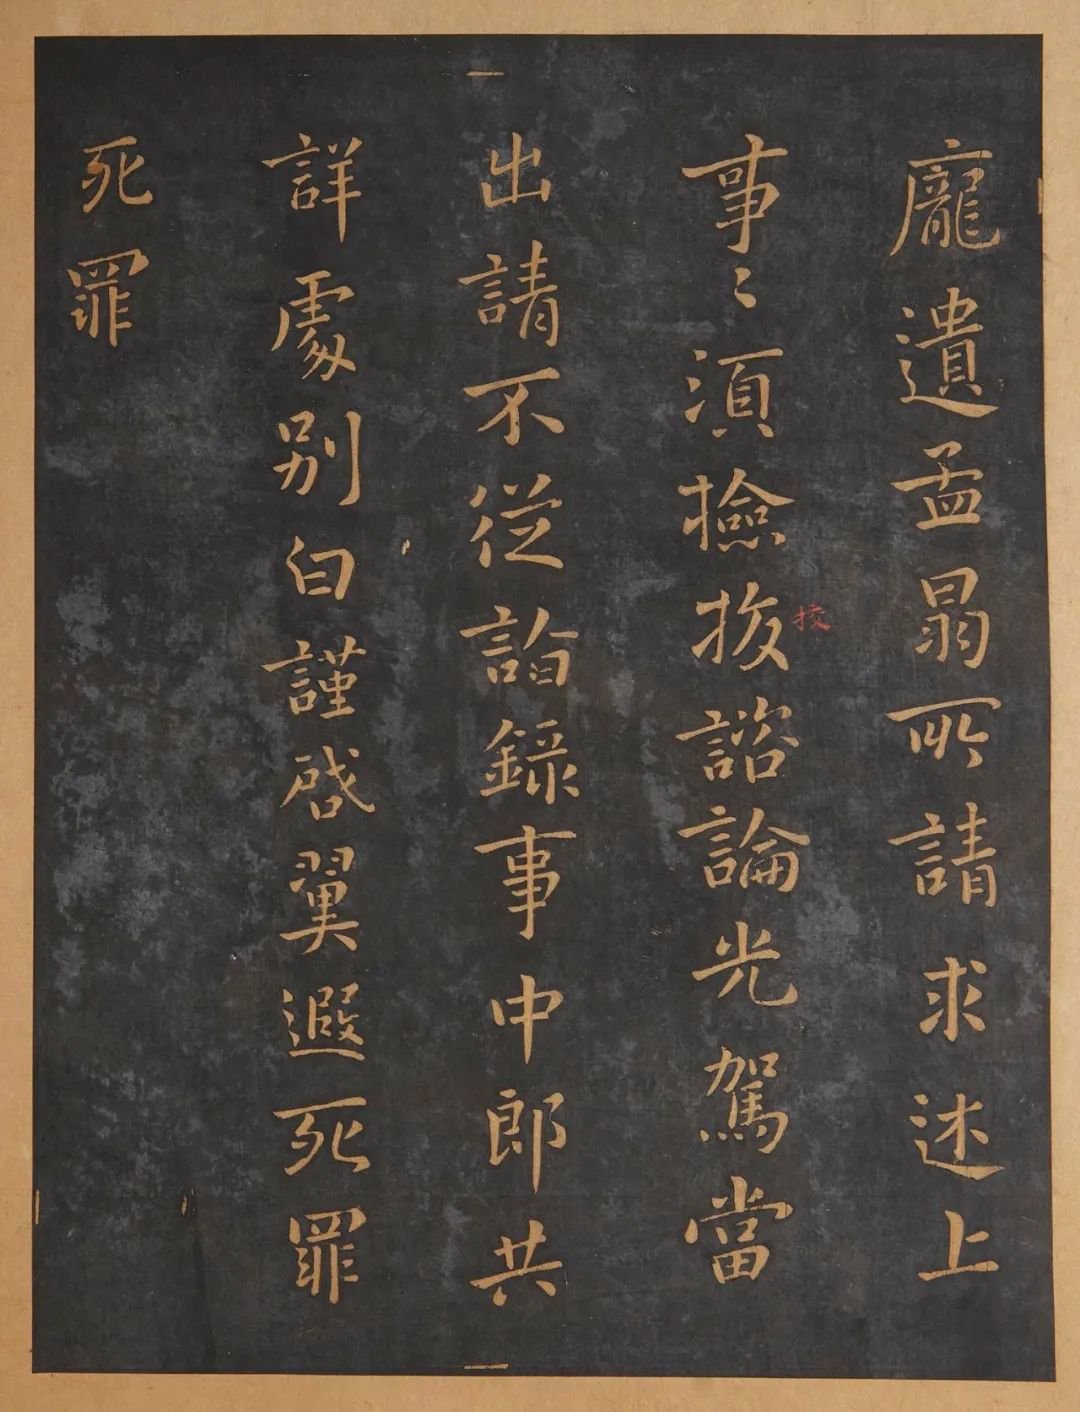 龐遺孟暠所請求述上
事〻須撿挍諮論光駕當
挍
出請不從詣録事中郎共
詳處別白謹啓翼遐死罪
死罪